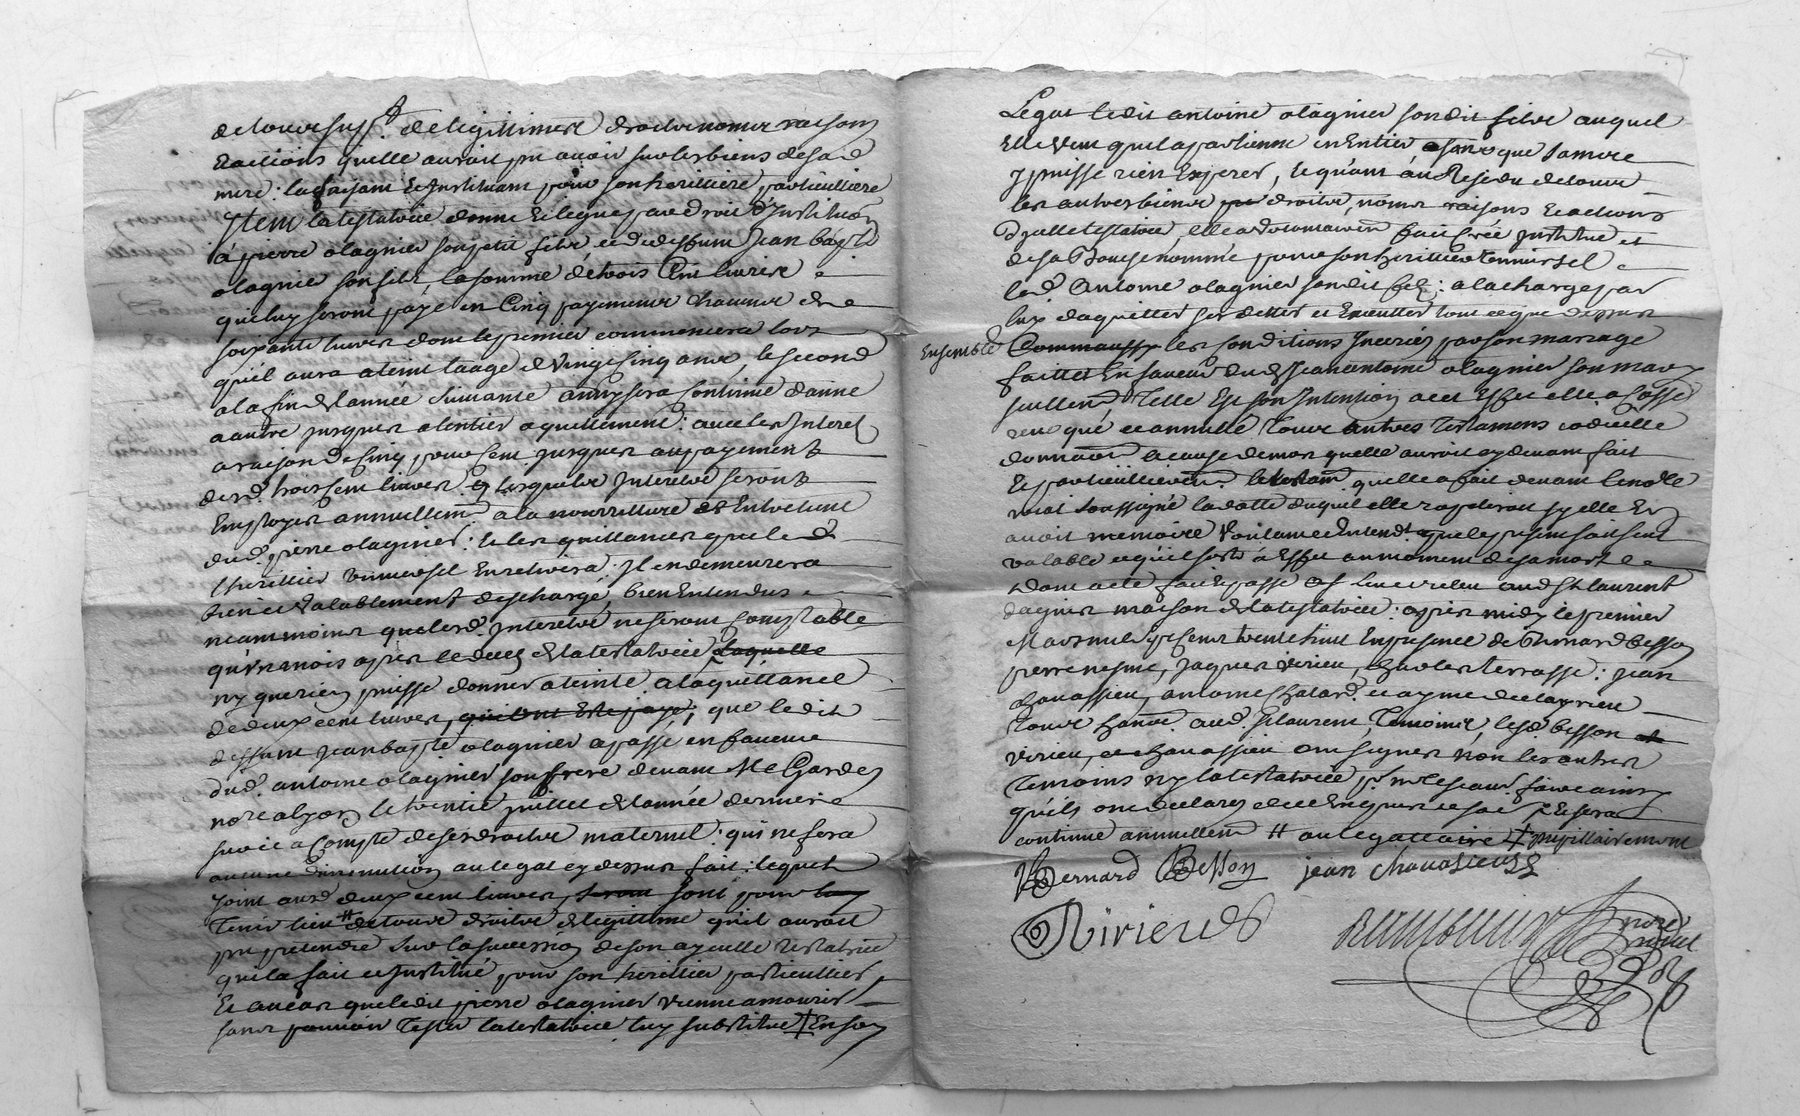 de tous ses de legittimere droits noms raisons
et actions quelle auroit pu avoir sur les biens de sad
mere: la faisant et instituant pour son heritiere particulliere
Item la testatrice donne et legue par droit d'institution
à pierre olagnier son petit fils et de deffunt Jean baptte
olagnier son fils, la somme de trois Cent livres
qui luy seront payé en Cinq payements chacun de
soixante livres dont le premier commencera lors
qu'il aura ateint laage de Vingt Cinq ans, le second
a la fin de lannée suivante ainsy sera Continué danne
a autre jusques a lentier aquittement: avec les Interets
a raison de Cinq pour Cent jusques au payement
desd. trois Cent livres lesquels Interets seront
Employes annuellemt a la nourriture et Entretient
dud. pierre olagnier: et les quittances que led
heritier universel En retirera: Il en demeurera
bien et valablement deschargé, bien Entendu
neammoins que lesd. Interets ne seront Comptable
qu'un mois apres le deces de la testatrice laquelle
ny que rien puisse donner ateinte a la quittance
de deux cent livres, qui ont este payé, que le dit
deffunt jean bapte olagnier a passé en faveur
dud. antoine olagnier son frere devant Me Garde
nore a lyon le trentie juillet de lannée derniere
sur et a Compte de ses droits maternel: qui ne fera
aucune diminution au legat cy dessus fait: lequel
joint aud. deux cent livres, seront sont pour luy
Tenir lieu # de tous droits de legittime qu'il auroit
pu pretendre sur la succession de son ayeulle testatrice
qui la fait et Institué pour son heritier particullier,
Et au cas que ledit pierre olagnier vienne a mourir
sans pouvoir Tester la testatrice luy substitue ‡ En son
Legat ledit antoine olagnier sondit fils auquel
Elle veut quil apartienne en Entier, sans que sa mere
y puisse rien Exiger, et quant au Residu de tous
les autres biens droits, noms raisons et actions
d'jcelle testatrice, elle a de sa main fait Créé Institue et
de sa Bouche nommé pour son heritier Universel
led. Antoine olagnier sondit fils: a la charge par
luy daquitter ses dettes et Executter tout ce que dessus
Ensemble Comme aussy les Conditions Inserées par son mariage
faittes En faveur dud. Jean antoine olagnier son mary
seullemt Telle Est son Intention a cet Effet elle a Cassé
revoqué et annullé Tous autres Testamens codicille
donnaon a cause de mort quelle auroit cy devant fait
Et particullieremt le testamt quelle a fait devant le notte
roial soussigné la datte duquel elle raporteroit sy elle En
avoit memoire Voulant et Entendt que le present soit seul
valable et qu'il sorte à Effet au moment de sa mort
Dont acte fait et passé au lieu aud St laurent
dagnier maison de la testatrice: apres midy le premier
Mars mil sept Cent trente huit En presence de Bernard besson
pierre nesme, jaques virieu, Charles terrasse: jean
Chavassieu, antoine Chatard et ayme delaprieu
Tous habit. aud. St laurent, Temoins, lesd besson et
virieu, et Chavassieu ont signes non les autres
Temoins ny la testatrice pr ne scavoir faire ainsy
qu'ils ont declares de ce Enquis et sera
continué annuellemt # au legattaire ‡ pupillairement
Bernard Besson jean chavassieux
Virieu
nore
royal